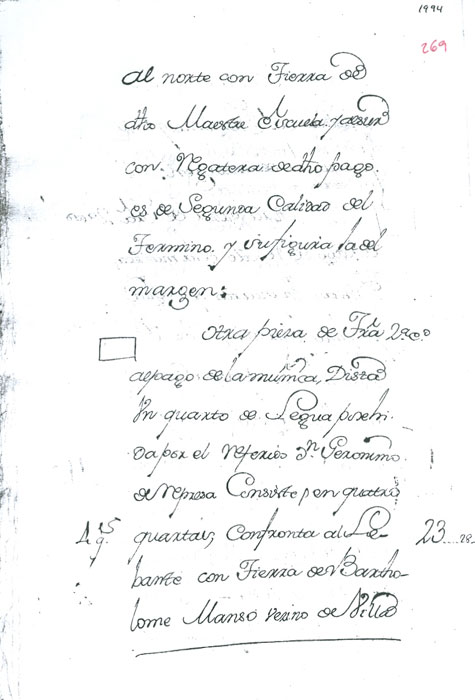 1994
269
al norte con Tierra de
dho Maestre Escuela, y al sur
con Regatera de dho pago
es de Segunda Calidad del
Termino y su figura la del
margen:
otra pieza de Trra 2ª Cᵈ
al pago de la
Dista
Un quarto de Legua
da por el referido Dn. Geronimo
de Represa Consiste en quatro
4 qs quartas, Confronta al Le- 23
bante con Tierra de Bartho-
lome Manso vecino de Villa